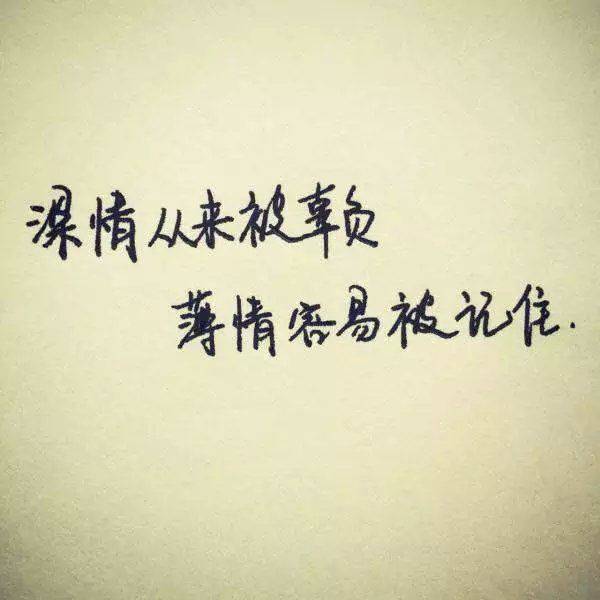 深情从来被辜负
薄情容易被记住.